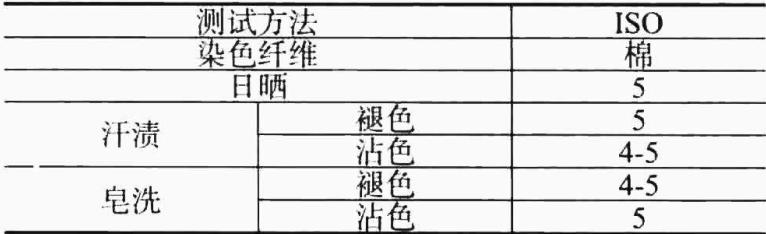 测试方法 ISO
染色纤维 棉
日晒 5
汗渍 褪色 5
沾色 4-5
皂洗 褪色 4-5
沾色 5